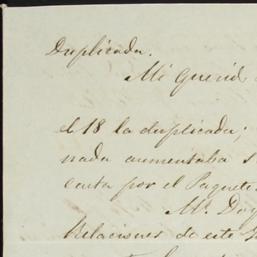 Duplicada.
Mi querid
el 18 la duplicada;
nada aumentaba s
carta por el Paquete
Mr. Doy
Relaciones de este